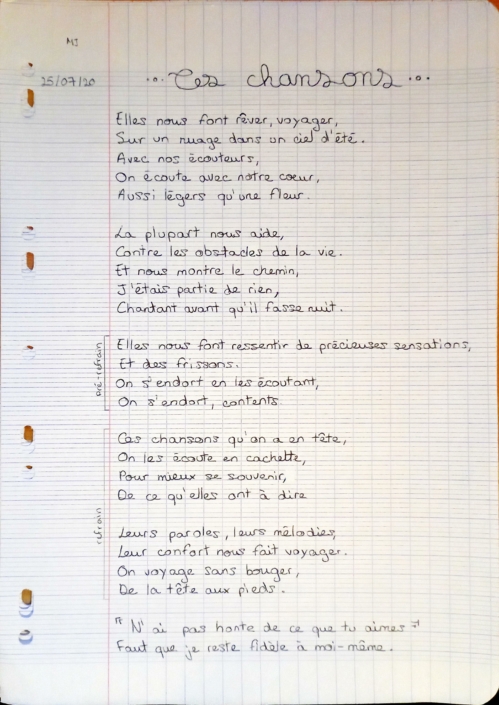 MJ
25/07/20
... Ces chansons ...
Elles nous font rêver, voyager,
Sur un nuage dans un ciel d'été.
Avec nos écouteurs,
On écoute avec notre coeur,
Aussi légers qu'une fleur.
La plupart nous aide,
Contre les obstacles de la vie.
Et nous montre le chemin,
J'étais partie de rien,
Chantant avant qu'il fasse nuit.
pré-refrain
Elles nous font ressentir de précieuses sensations,
Et des frissons.
On s'endort en les écoutant,
On s'endort, contents.
refrain
Ces chansons qu'on a en tête,
On les écoute en cachette,
Pour mieux se souvenir,
De ce qu'elles ont à dire
Leurs paroles, leurs mélodies,
Leur confort nous fait voyager.
On voyage sans bouger,
De la tête aux pieds.
" N'ai pas honte de ce que tu aimes "
Faut que je reste fidèle à moi-même.